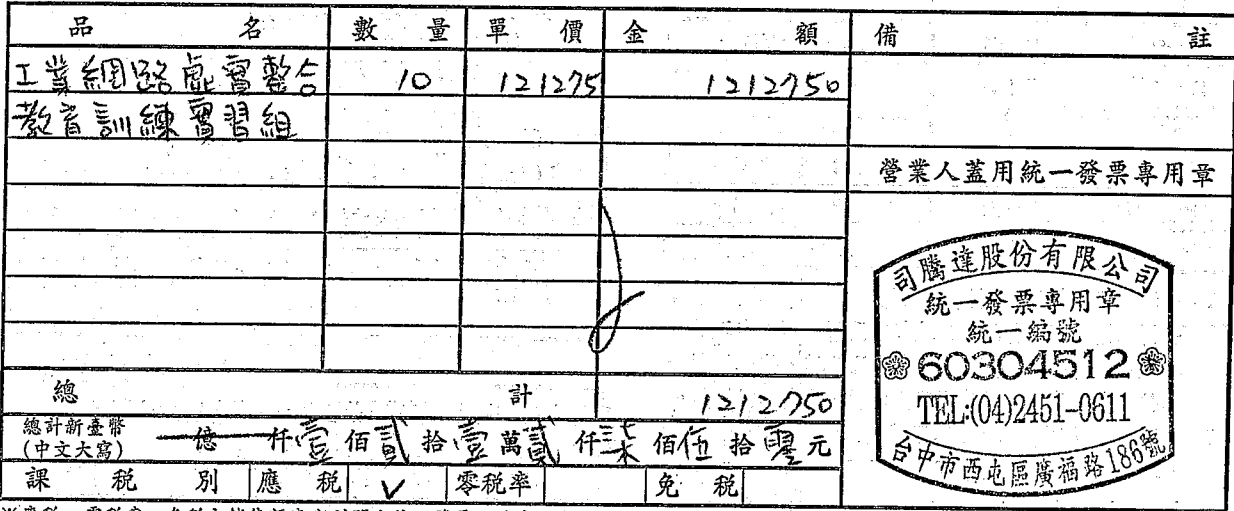 品名 數量 單價 金額 備註
工業網路虛實整合 10 121275 1212750
教育訓練實習組
營業人蓋用統一發票專用章
司騰達股份有限公司
統一發票專用章
統一編號
60304512
TEL:(04)2451-0611
台中市西屯區廣福路186號
總計 1212750
總計新臺幣
(中文大寫) 億仟壹佰貳拾壹萬貳仟柒佰伍拾零元
課稅別 應稅 V 零稅率 免稅